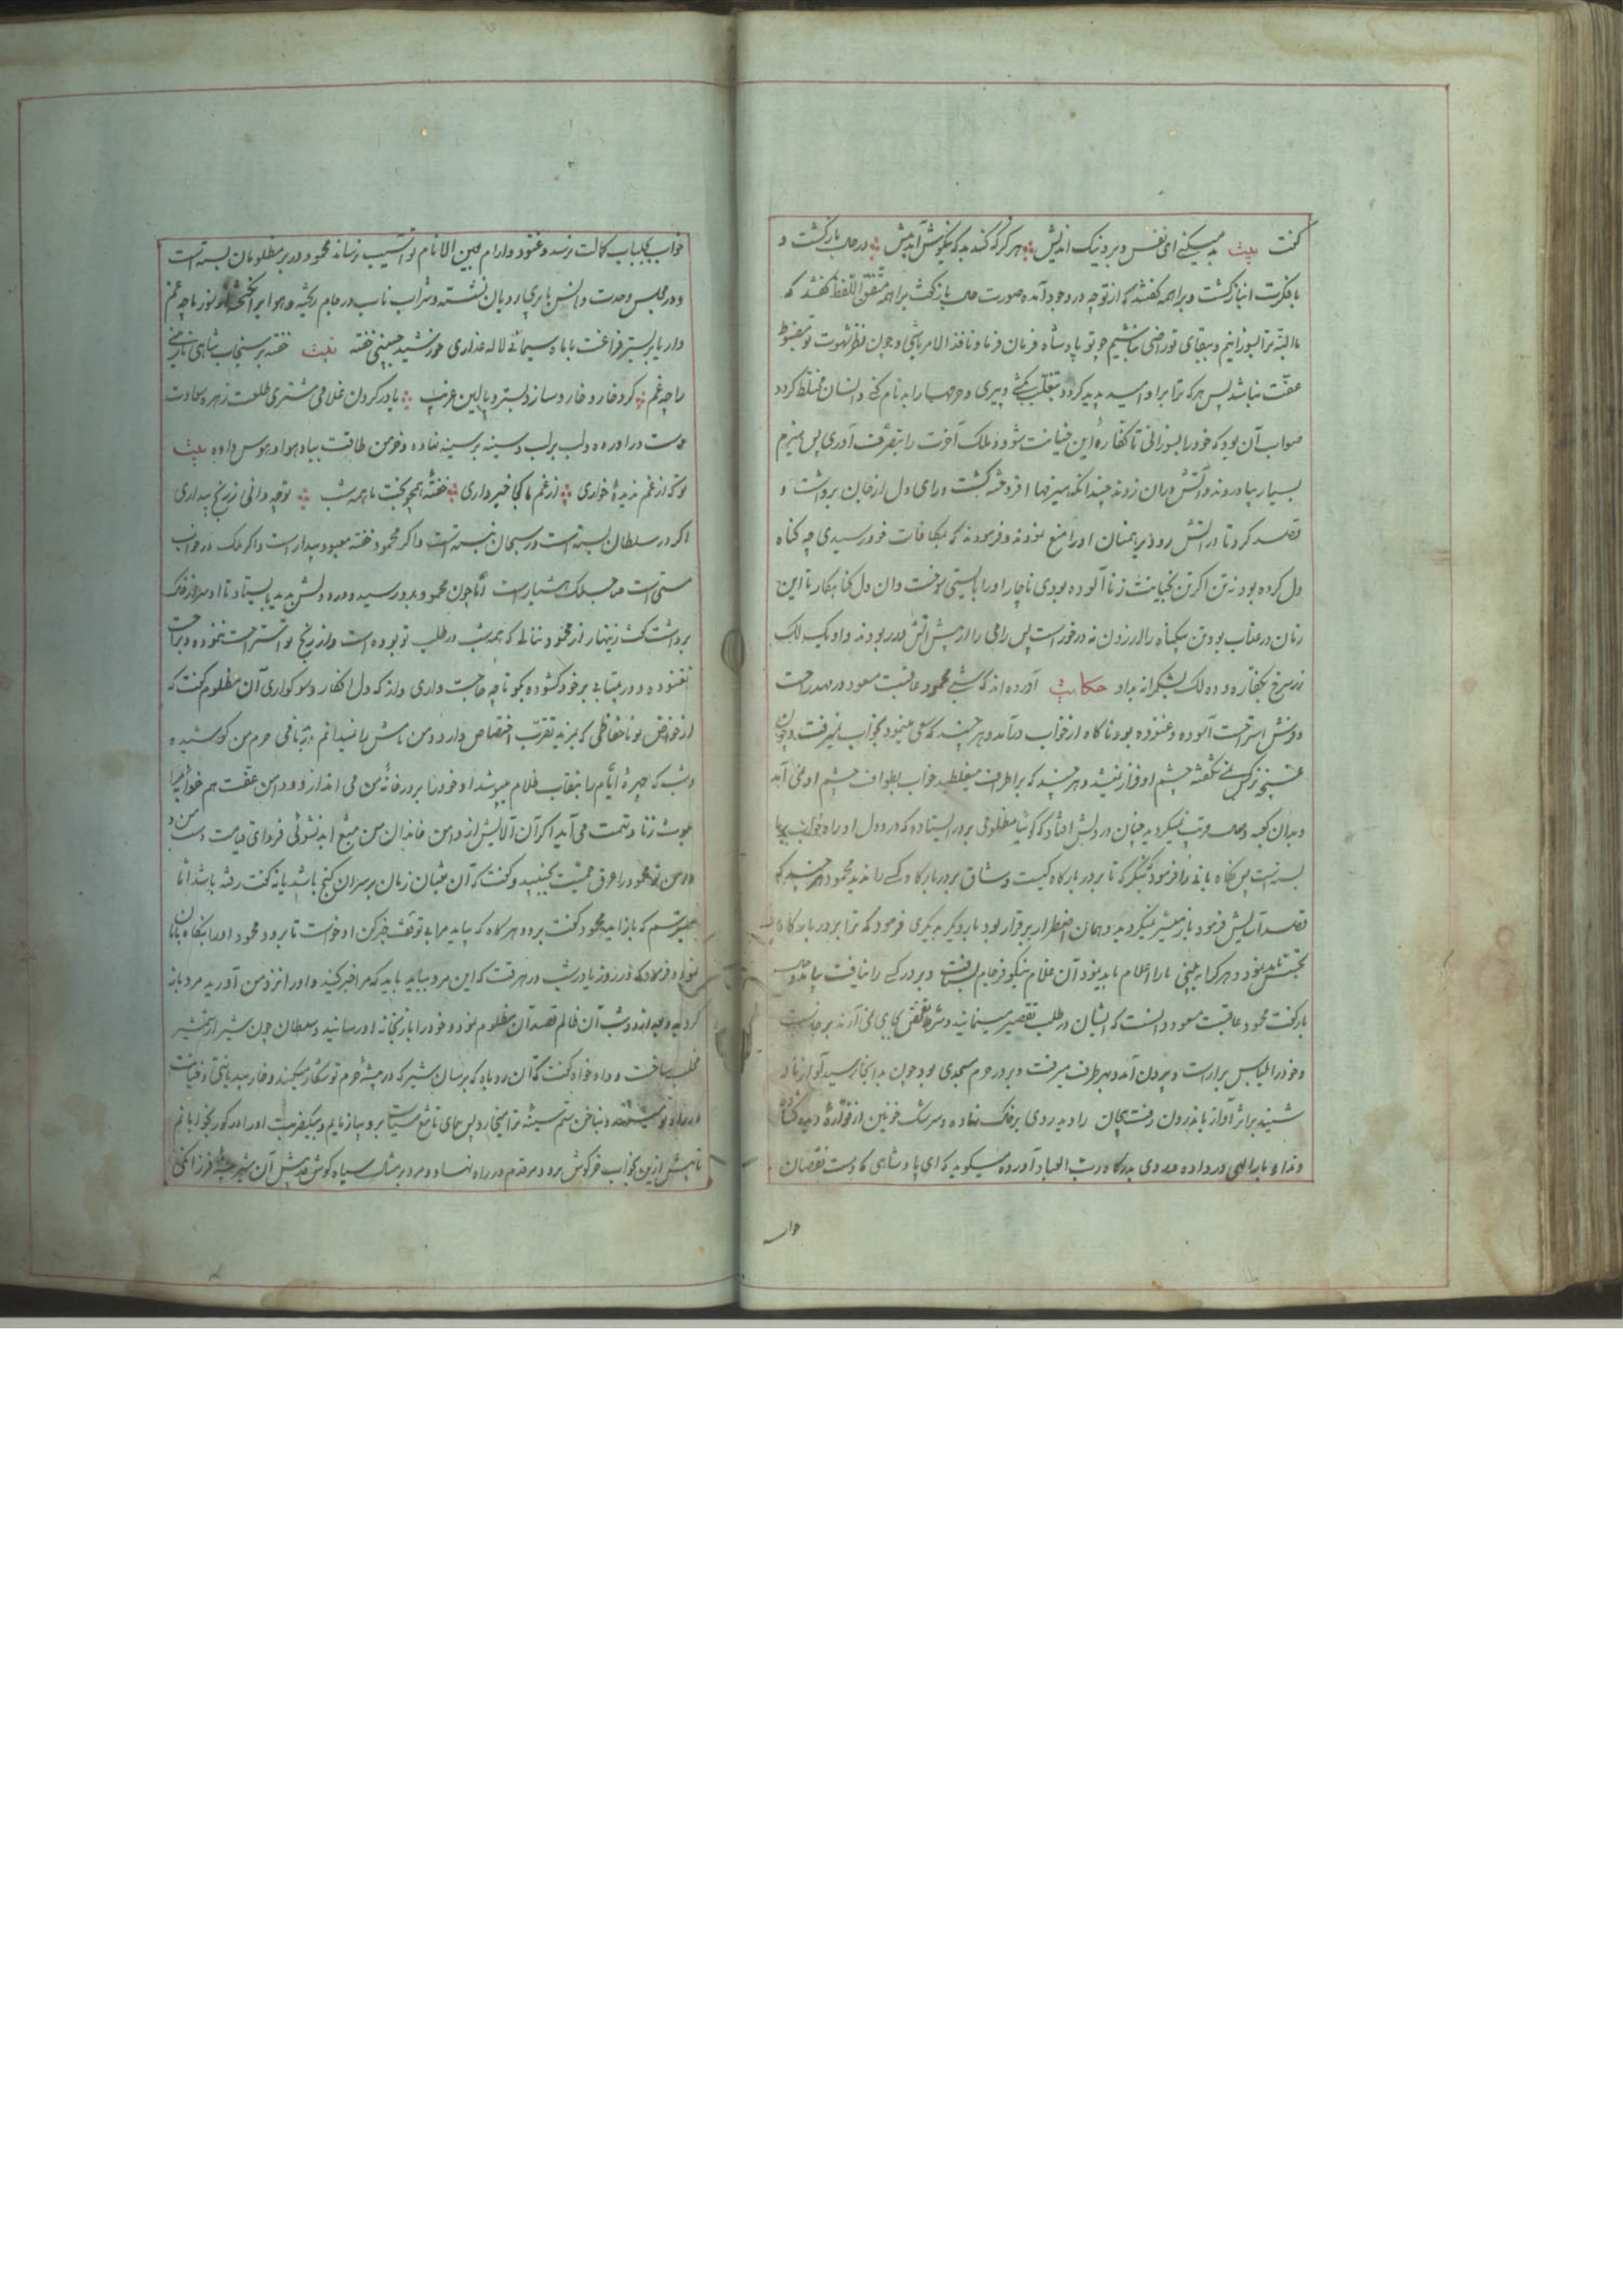 گفت بیت بد میکنی ای نفس و بر و نیک اندیش هر کر که کند بد که نکویش آید پیش در حال بازگشت و
با فکرت انباز گشت و براهمه گفتند که از تو چه در وجود آمده صورت حال بازگفت براهمه متفق اللفظ گفتند که
ما البته ترا بسوزانیم و ببقای تو راضی نباشیم چو تو پادشاه فرمان فرما و نافذ الامر باشی و چون نظر شهوت تو مضبوط
عفت نباشد پس هر که ترا براو امید پدید گردد بتغلب بکشی و پیری و حرمها را بدنام کنی و انسان مختلط گردد
صواب آن بود که خود را بسوزانی تا کفاره این خیانت شود و ملک آخرت را بتصرف آوری پس هیزم
بسیار بیاوردند و آتش دران زدند چندانکه هیزمها افروخته گشت و رای دل از جان برداشت و
قصد کرد تا در آتش رود برهمنان او را منع نمودند و فرمودند که بمکافات خود رسیدی چه گناه
دل کرده بود نه تن اگر تن بخیانت زنا آلوده بودی ناچار او را بایستی سوخت و ان دل گناهکار تا این
زمان در عذاب بود تن بیگناه را لرزدن نه در خور است پس رای را از پیش آتش دور بودند و او یک لک
زر سرخ بکفاره و ده لک بشکرانه بداد حکایت آورده اند که شبی محمود عاقبت مسعود در مهد راحت
و فرش استراحت آسوده و غنوده بود ناگاه از خواب درآمد و هر چند که سعی مینمود بخواب نمیرفت و چون
غنچه نرگس نی شگفته چشم او فراز نمیشد و هر چند که بر اطراف میغلطید خواب بطواف چشم او نمی آمد
و بدان گمبه وصال مرتب نمیگردید چنان در دلش افتاد که گوئیا مظلومی بر در ایستاده که درد دل او راه خواب بر ما
بسته است پس نگاه بانی را فرمود بنگر که تا بر در بارگاه کیست وشاق بر در بارگاه کسی را ندید محمود هر چند که
قصد آسایش فرمود باز میسر نمیگردید و همان اضطرار برقرار بود بار دیگر بدیگری فرمود که ترا بر در بارگاه
تجسس باید نمود و هر کرا به بینی ما را اعلام باید نمود آن غلام نیکو فرجام بشتافت و بر در کسی را نیافت بیامد و حال
بازگفت محمود عاقبت مسعود دانست که ایشان در طلب تقصیر مینمایند و شرط تفحص بجای نمی آرند برخاست
و خود را بلباس براراست و بیرون آمد و بهر طرف میرفت و بر در حرم مسجدی بود چون بدانجا رسید آواز ناز
شنید بر اثر آواز باندرون رفت بیجان را دید روی بر خاک نهاده و سرشک خونین از فواره دیده گشاده
و ندا و با براللهی در داده و روی بدرگاه رب العباد آورده میگوید که ای پادشاهی که دست نقصان
خواب
خواب بجلباب کمالت نرسد و غنود و ارام بین الانام تو آسیب نرساند محمود در بر مظلومان بسته است
و در مجلس وحدت و انس با پری رویان نشسته و شراب ناب در جام ریخته
دارد بر بستر فراغت با ماه سیمائی لاله عذاری خورشید جبینی خفته بیت خفته بر سنجاب شاهی نازنینی
را چه غم گر د خار و خار و سازد بستر و بالین غریب یا در گردن غلامی مشتری طلعت زهره سعادت
دست دراورده و لب بر لب و سینه بر سینه نهاده و خرمن طاقت بباد هوا و هوس داده بیت
تو که از غم ندیده خواری از غم ما کجا خبر داری خفته همچو بخت ما همه شب تو چه دانی ز رنج بیداری
اگر در سلطان بسته است در سبحان نبسته است و اگر محمود خفته معبود بیدار است و اگر ملک در خواب
مستی است صاحب ملک هشیار است آنا چون محمود بدو رسید و درد دلش بدید بایستاد تا او سر از خاک
برداشت گفت زینهار از محمود ننالی که همه شب در طلب تو بوده است و از رنج تو استراحت ننموده و براحت
نغنوده و در بیتابی بر خود گشوده بگو تا چه حاجت داری و از که دل افکار و سوگواری آن مظلوم گفت که
از خواص تو ناحفاظی که بمزید تقرب اختصاص دارد و من نامش را نمیدانم در بدنامی حرم من کوشیده
و شب که چهره ایام را بنقاب ظلام میپوشد او خود را بر در خانه من می اندازد و دامن عفت هم خوابه مرا
بلوث زنا و تهمت می آید اگر آن آلایش از دامن خاندان من بتیغ ابد نشوئی فردای قیامت دست من و
دامن تو محمود را عرق حمیت بجنبید و گفت که آن ثعبان زمان بر سر آن گنج باشد یا نه گفت رفته باشد اما
میترسم که باز اید محمود گفت برو و هر گاه که بیاید مرا بی توقف خبر کن او خواست تا برود محمود او را بنگاه بانان
نمود و فرمود که در روز یا در شب در هر وقت که این مرد بیاید باید که مرا خبر کنید و او را نزد من آورید مرد باز
گردید و بعد از دو شب آن ظالم قصد آن مظلوم نمود و خود را باز بخانه او رسانید و سلطان چون شیر از شمشیر
مخلب ساخت و داد خواه گفت که آن روباه که بر سان شیر که در بیشه حرم تو شکار میکند و خار میدانتی و خیانت
در راه تو مینهد و بناخن ستم سینه ترا میخارد پس جای تا تیغ سیاست برو بیازمایم و بیک ضربت او را در گور بخوابانم
تا بیش ازین بخواب خرگوش برد و مر قدم در راه نهاد و مرد بر مثال سیاه گوش در پیش آن شیر بیشه فرزانگی